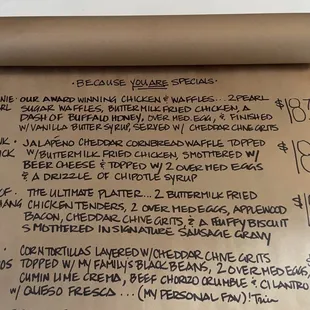 · BECAUSE YOU ARE SPECIALS ·
OUR AWARD WINNING CHICKEN & WAFFLES... 2 PEARL
SUGAR WAFFLES, BUTTERMILK FRIED CHICKEN, A
DASH OF BUFFALO HONEY, OVER MED. EGG, & FINISHED
W/ VANILLA BUTTER SYRUP, SERVED W/ CHEDDAR CHIVE GRITS
$18
JALAPENO CHEDDAR CORNBREAD WAFFLE TOPPED
W/ BUTTERMILK FRIED CHICKEN, SMOTHERED W/
BEER CHEESE & TOPPED W/ 2 OVER MED EGGS
& A DRIZZLE OF CHIPOTLE SYRUP
THE ULTIMATE PLATTER... 2 BUTTERMILK FRIED
CHICKEN TENDERS, 2 OVER MED EGGS, APPLEWOOD
BACON, CHEDDAR CHIVE GRITS, & A FLUFFY BISCUIT
SMOTHERED IN SIGNATURE SAUSAGE GRAVY
CORN TORTILLAS LAYERED W/ CHEDDAR CHIVE GRITS
TOPPED W/ MY FAMILY'S BLACK BEANS, 2 OVER MED EGGS,
CUMIN LIME CREMA, BEEF CHORIZO CRUMBLE & CILANTRO
W/ QUESO FRESCO... (MY PERSONAL FAV)!